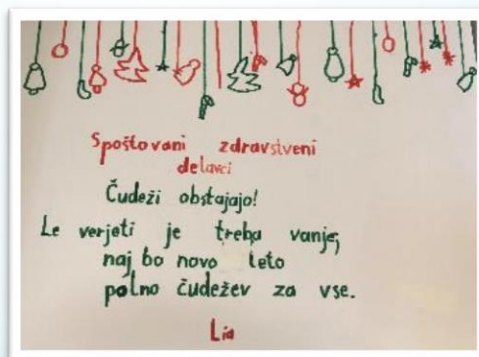 Spoštovani zdravstveni
delavci
Čudeži obstajajo!
Le verjeti je treba vanje,
naj bo novo leto
polno čudežev za vse.
Lia